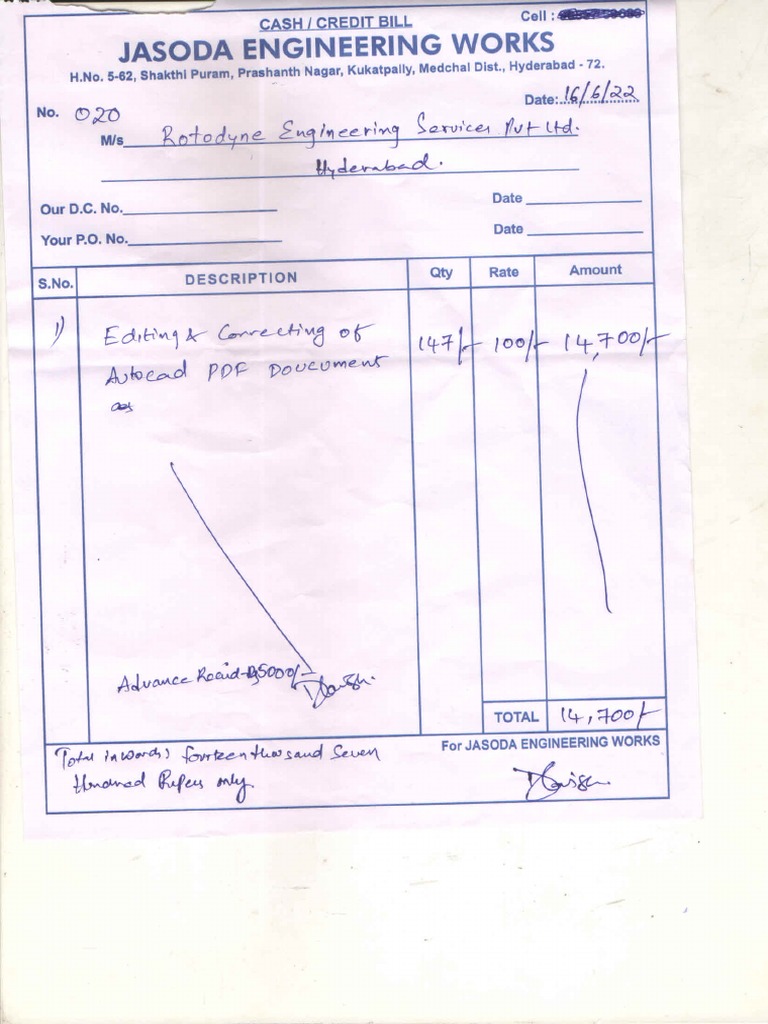 CASH / CREDIT BILL
Cell :
JASODA ENGINEERING WORKS
H.No. 5-62, Shakthi Puram, Prashanth Nagar, Kukatpally, Medchal Dist., Hyderabad - 72.
No. 020 Date: 16/6/22
M/s Rotodyne Engineering Services Pvt Ltd.
Hyderabad.
Our D.C. No. Date
Your P.O. No. Date
S.No. DESCRIPTION Qty Rate Amount
1) Editing & Correcting of 147/- 100/- 14,700/-
Autocad PDF DOUCUMENT
Advance 5000/-
TOTAL 14,700/-
Total in words: fourteen thousand Seven
Hundred Rupees only.
For JASODA ENGINEERING WORKS